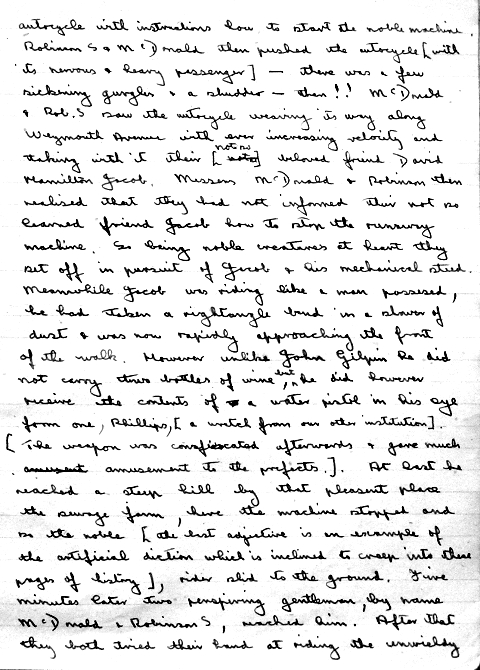 autocycle with instructions how to start the noble machine.
Robinson S & McDonald then pushed the autocycle [with
its nervous & heavy passenger] — there was a few
sickening gurgles & a shudder — then!! McDonald
& Rob.S saw the autocycle weaving its way along
Weymouth Avenue with ever increasing velocity and
taking with it their [not so] beloved friend David
Hamilton Jacob. Messers McDonald & Robinson then
realised that they had not informed their not so
learned friend Jacob how to stop the runaway
machine. So being noble creatures at heart they
set off in pursuit of Jacob & his mechanical steed.
Meanwhile Jacob was riding like a man possesed,
he had taken a rightangle bend in a shower of
dust & was now rapidly approaching the front
of the walk. However unlike John Gilpin he did
not carry two bottles of wine but, he did however
receive the contents of a water pistol in his eye
from one, Phillips, [a wretch from our other institution].
[The weapon was confiscated afterwards & gave much
amusement to the prefects.]. At last he
reached a steep hill by that pleasant place
the sewage farm, here the machine stopped and
so the noble [the last adjective is an example of
the artificial diction which is inclined to creep into these
pages of history], rider slid to the ground. Five
minutes later two perspiring gentleman, by name
McDonald & Robinson S, reached him. After that
they both tried their hand at riding the unwieldy